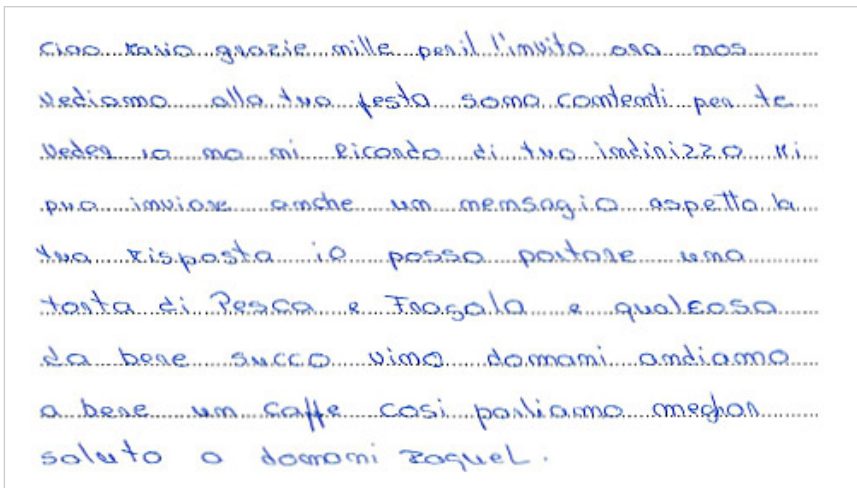 Ciao Mario grazie mille per il l'invito ora nos
vediamo alla tua festa sono contenti per te
veder io no mi Ricordo di tuo indirizzo Mi
puo inviare anche un mensagio aspetto la
tua risposta io posso portare una
torta di Pesca e Fragola e qualcosa
da bere succo vino domani andiamo
a bere un caffe cosi parliamo meghor
saluto a domani Raquel.